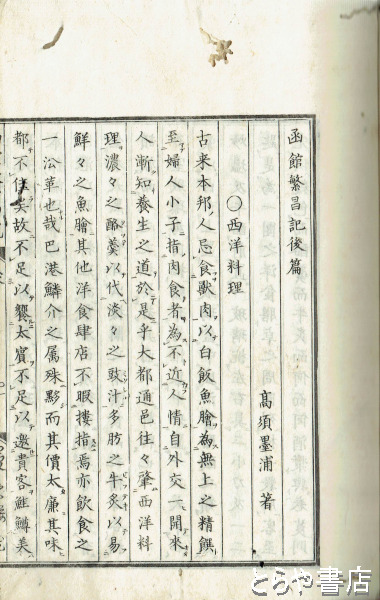 函館繁昌記後篇
髙須墨浦 著
〇西洋料理
古来本邦ノ人忌食獸肉以白飯魚膾為無上之精饌
至婦人小子指肉食者為不近人情自外交一開來
人漸知養生之道於是乎大都通邑往々肇西洋料
理濃々之酪羹以代淡々之豉汁多肪之牛炙以易
鮮々之魚膾其他洋食肆店不暇摟指焉亦飲食之
一公革也哉巴港鱗介之属殊夥而其價太廉其味
都不佳矣故不足以饗太賓不足以邀貴客鮭鱒美
とらや書店